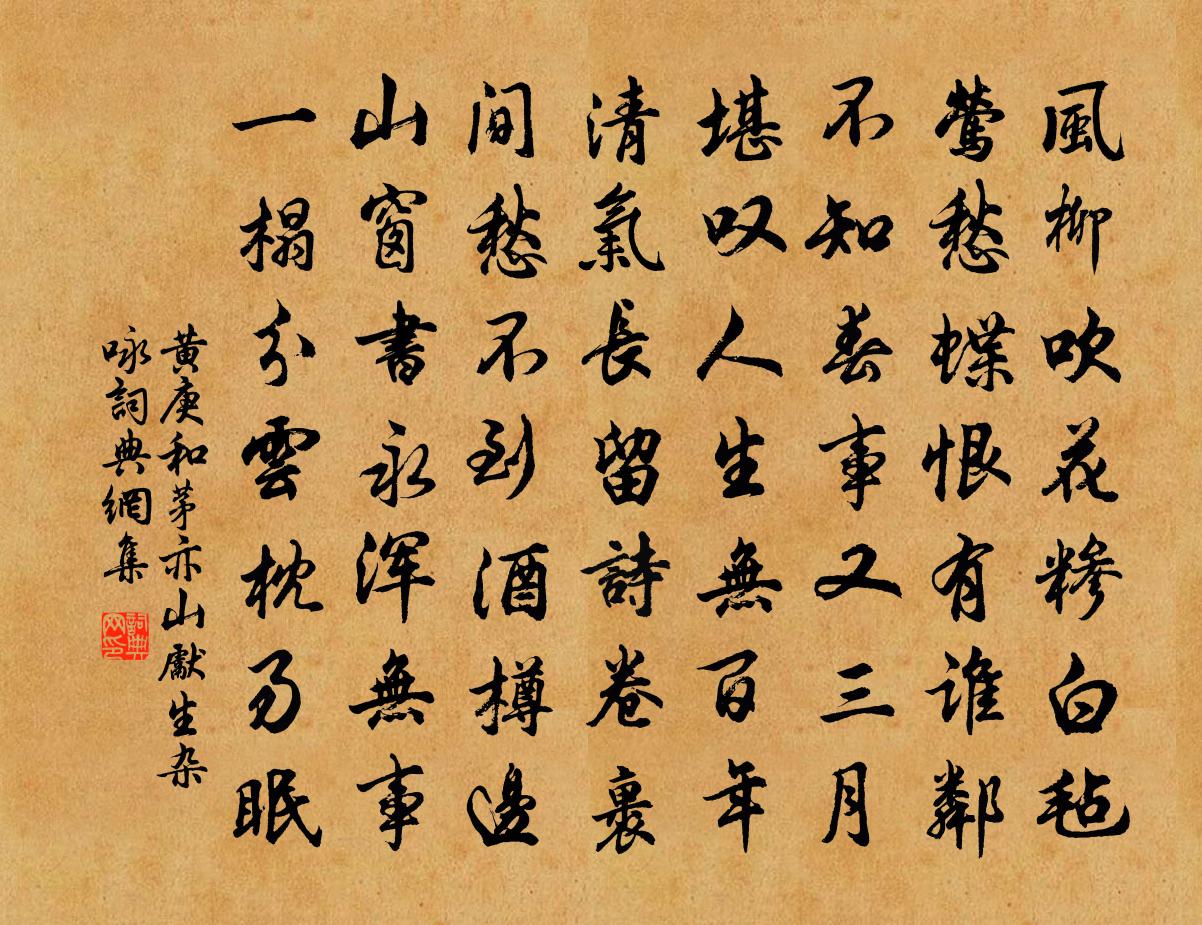 風柳吹花糁白毡
莺愁蝶恨有谁鄰
不知春事又三月
堪叹人生無百年
清氣長留詩卷裏
间愁不到酒樽邊
山窗書永浑無事
一榻分雲枕易眠
黄庚和茅亦山獻生杂
咏詞典網集
詞典网印